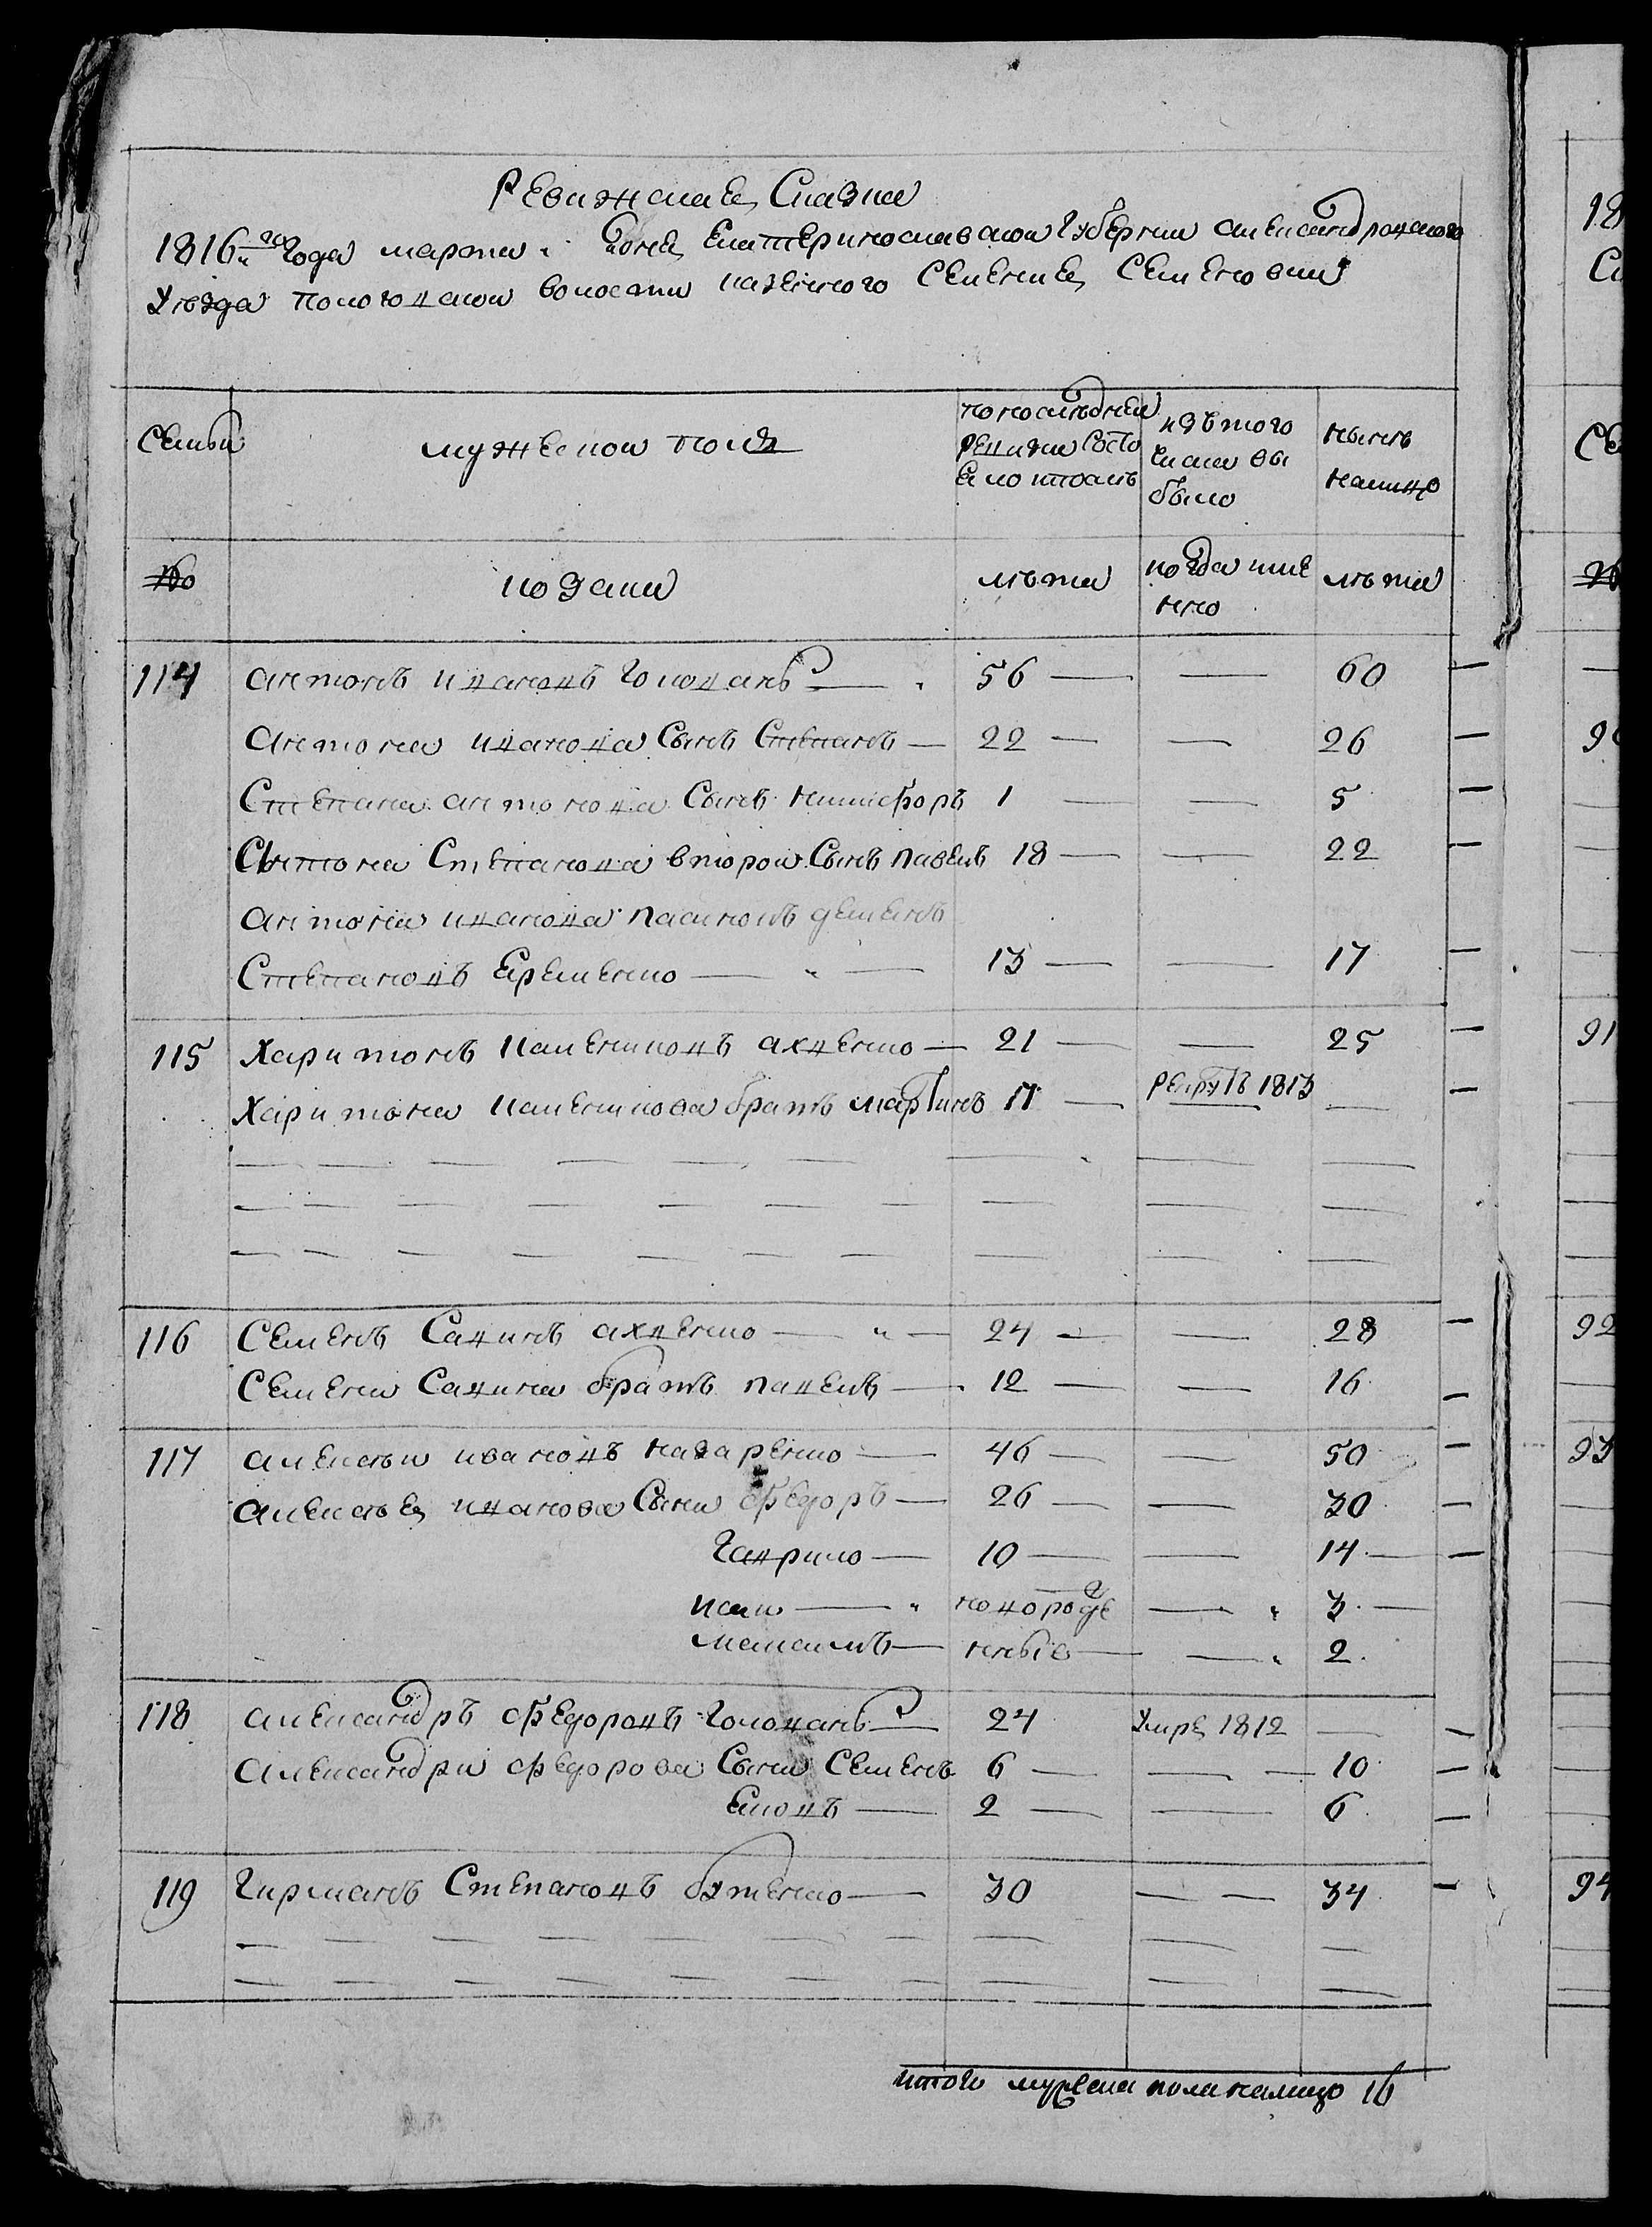 Ревижская Сказка
1816го года марта дня Екатеринославской губернии александровского
уезда пологовской волости казенного Селения Семеновки
Семьи
мужеской пол
по последней ревизии Состояло
изъ того числа выбыло
нынѣ налицо
№
лѣта
когда имянно
лѣта
114 антонъ ивановъ головань 56 — — 60 —
антона иванова Сынъ Степанъ — 22 — — 26 —
Степана антонова Сынъ никифоръ 1 — — 5 —
антона Степанова второй Сынъ павелъ 18 — — 22 —
антона иванова пасинокъ деменъ
Степановъ Еременко — 13 — — 17 —
115 Харитонъ клементовъ авдеенко — 21 — — 25 —
Харитона братъ мартинъ 17 — рекрутъ 1813 — —
116 Семенъ Савинъ — 24 — — 28 —
Семена Савина братъ павелъ — 12 — — 16 —
117 алексѣй ивановъ назаренко — 46 — — 50 —
алексѣя иванова Сыни федоръ — 26 — — 30 —
гаврило — 10 — — 14 — —
— новороже — 3 —
— нные — — 2
118 александръ федоровъ головань — 24 умре 1812 — —
александра федорова Сыни Семенъ 6 — — 10 —
— 2 — — 6 —
119 Степановъ бутенко — 30 — — 34 —
итого мужеска пола налицо 16
18
91
92
93
94